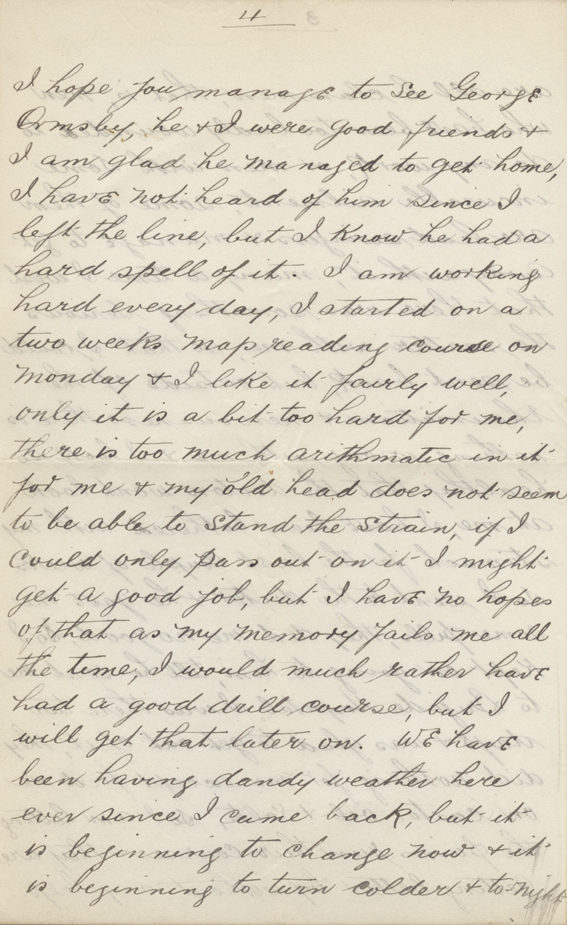 4
I hope you manage to see George
Ormsby, he & I were good friends &
I am glad he managed to get home,
I have not heard of him since I
left the line, but I know he had a
hard spell of it. I am working
hard every day, I started on a
two weeks map reading course on
Monday & I like it fairly well,
only it is a bit too hard for me,
there is too much arithmatic in it
for me & my old head does not seem
to be able to stand the strain, if I
could only pass out on it I might
get a good job, but I have no hopes
of that as my memory fails me all
the time, I would much rather have
had a good drill course, but I
will get that later on. We have
been having dandy weather here
ever since I came back, but it
is beginning to change now & it
is beginning to turn colder & to-night